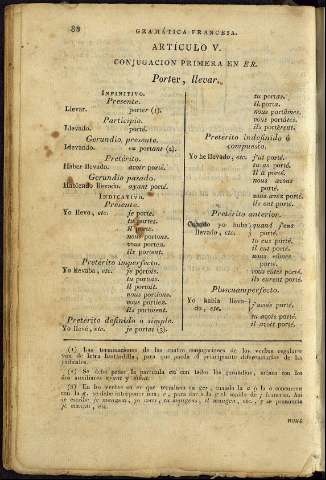 88 GRAMÁTICA FRANCESA.
ARTICULO V.
CONJUGACION PRIMERA EN ER.
Porter, llevar.
INFINITIVO.
Presente.
Llevar. porter (1).
Participio.
Llevado. porté.
Gerundio presente.
Llevando. en portant (2).
Pretérito.
Haber llevado. avoir porté.
Gerundio pasado.
Habiendo llevado. ayant porté.
INDICATIVO.
Presente.
Yo llevo, etc. je porte.
tu portes.
il porte.
nous portons.
vous portez.
ils portent.
Pretérito imperfecto.
Yo llevaba, etc. je portois.
tu portois.
il portoit.
nous portions.
vous portiez.
ils portoient.
Pretérito definido o simple.
Yo llevé, etc. je portai (3).
tu portas.
il porta.
nous portâmes.
vous portâtes.
ils portèrent.
Pretérito indefinido ó
compuesto.
Yo he llevado, etc. j'ai porté.
tu as porté.
il a porté.
nous avons
porté.
vous avez porté.
ils ont porté.
Pretérito anterior.
yo hube quand j'eus
llevado, etc. porté.
tu eus porté.
il eut porté.
nous eûmes
porté.
vous eûtes porté.
ils eurent porté.
Pluscuamperfecto.
Yo habia lleva-
do, etc. j'avois porté.
tu avois porté.
il avoit porté.
(1) Las terminaciones de las cuatro conjugaciones de los verbos regulares
van de letra bastardilla, para que pueda el principiante diferenciarlas de las
radicales.
(2) Se debe poner la partícula en con todos los gerundios, menos con los
dos auxiliares ayant y étant.
(3) En los verbos en er que terminen en ger, cuando la a ó la o concurren
con la g, se debe interponer una e, para dar á la g el sonido de j francesa. Asi
se escribe je mangeai, je mangeois, etc., y se pronuncia
nous